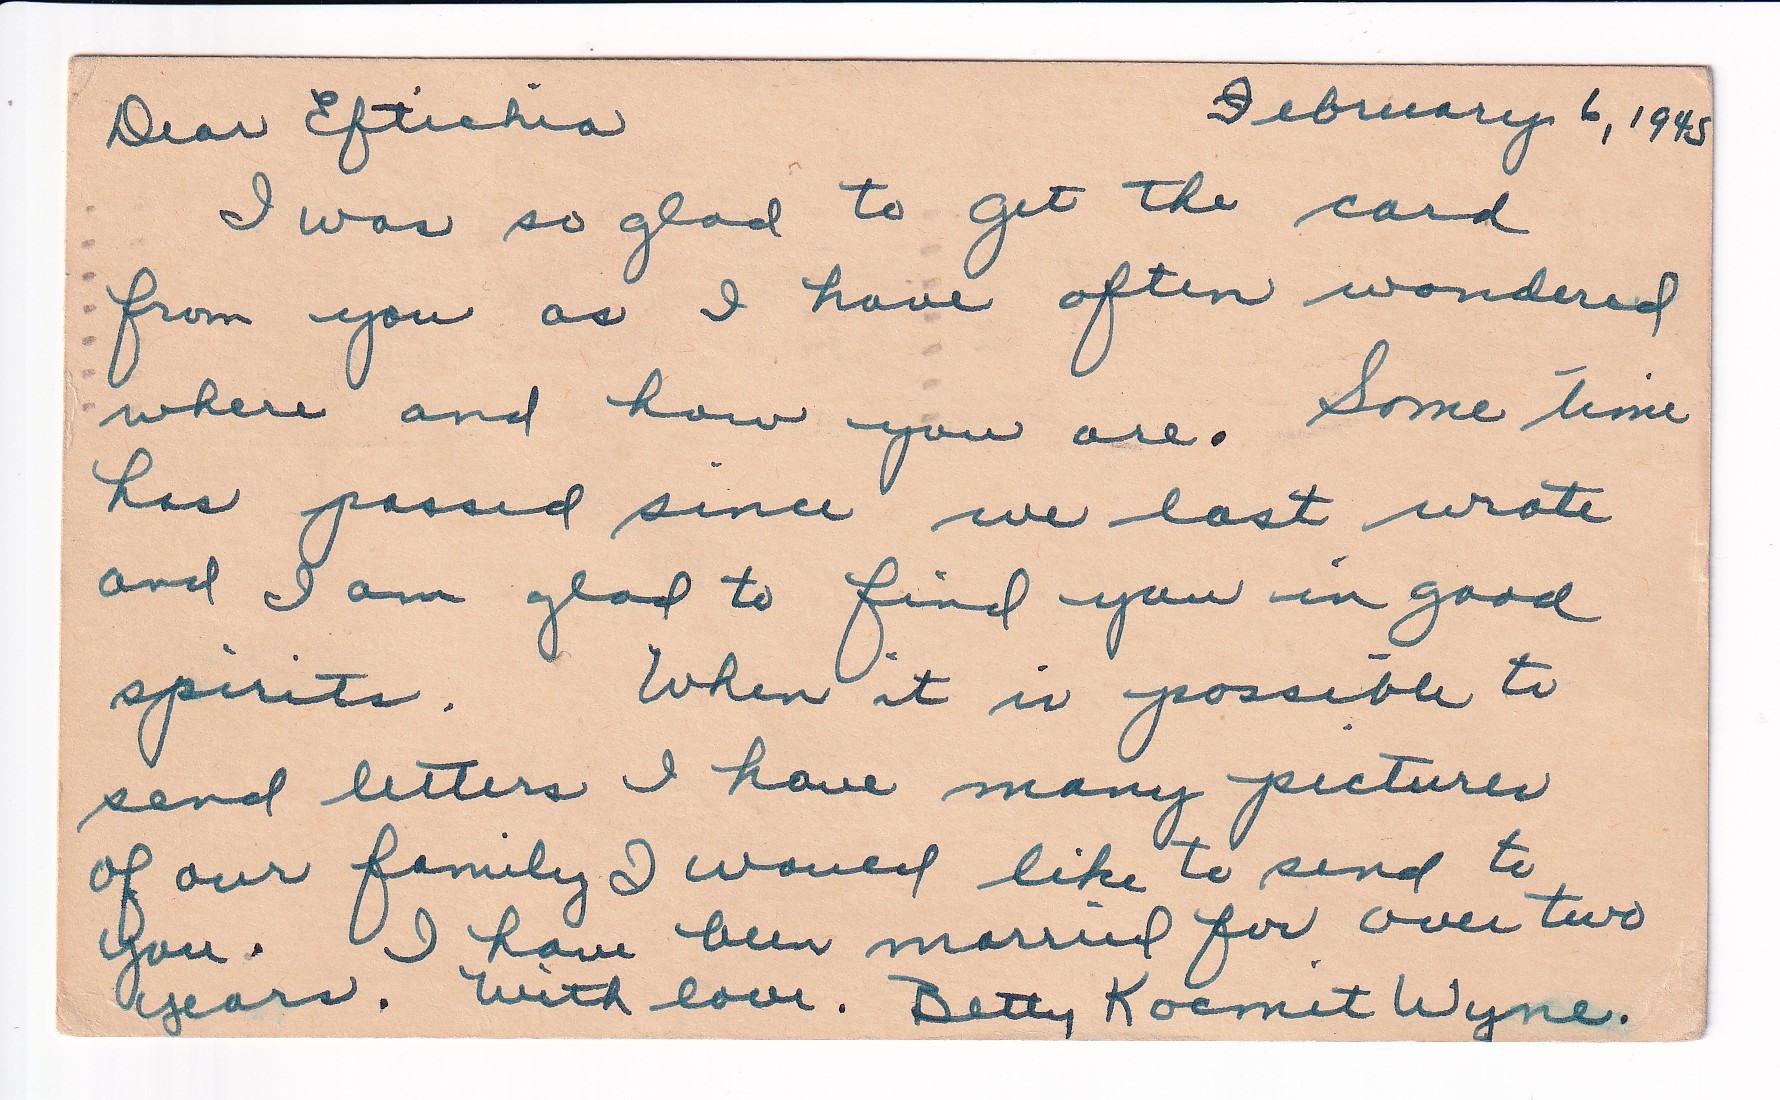 February 6, 1945
Dear Eftichia
I was so glad to get the card
from you as I have often wondered
where and how you are. Some time
has passed since we last wrote
and I am glad to find you in good
spirits. When it is possible to
send letters I have many pictures
of our family I would like to send to
you. I have been married for over two
years. With love. Betty Kocmit Wyne.